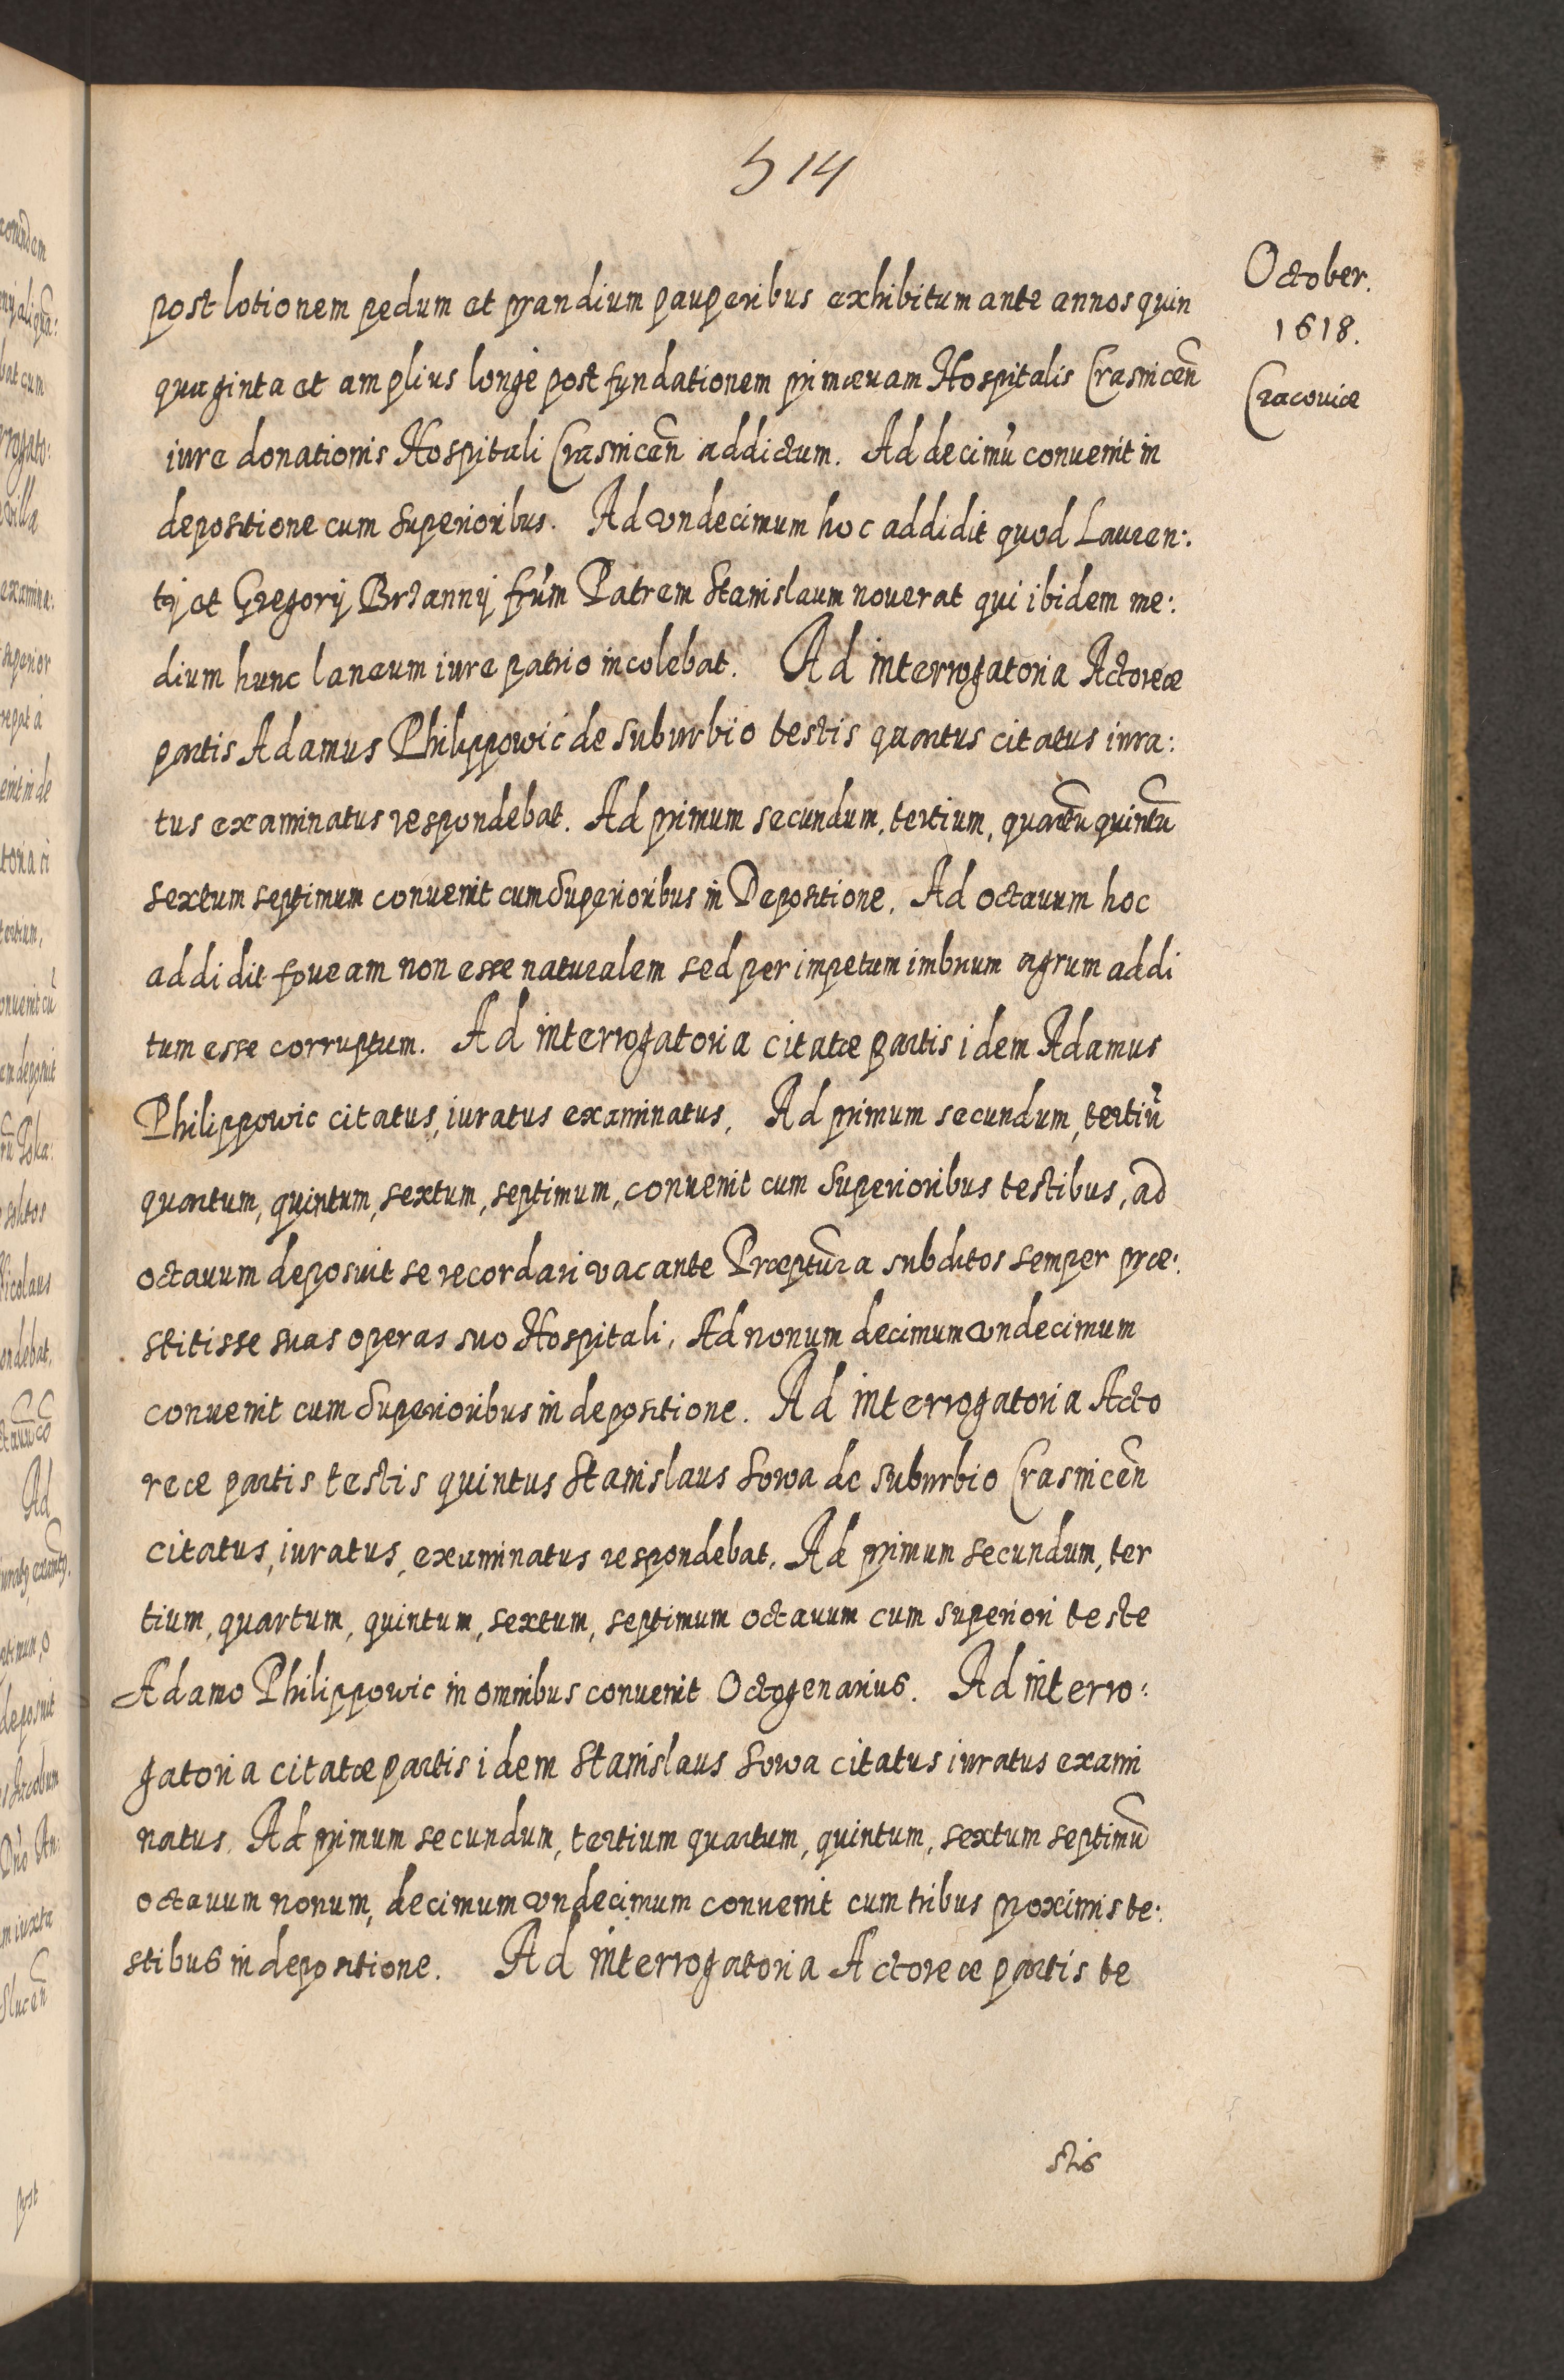 514
October.
1618.
Cracouiæ
post lotionem pedum et prandium pauperibus exhibitum ante annos quin
quaginta et amplius longè post fundationem primæuam Hospitalis Crasnicen̄
iure donationis Hospitali Crasnicen̄ addictum. Ad decimu᷃ conuenit in
depositione cum superioribus. Ad vndecimum hoc addidit quod Lauren:
tij et Gregorij Brzannij fru᷃m Patrem Stanislaum nouerat qui ibidem me:
dium hunc laneum iure patrio incolebat. Ad interrogatoria Actoreæ
partis Adamus Philippowić de suburbio testis quartus citatus iura:
tus examinatus respondebat. Ad primum secundum, tertium, quartū quintū
sextum septimum conuenit cum superioribus in Depositione. Ad octauum hoc
addidit foueam non esse naturalem sed per impetum imbrium agrum addi
tum esse corruptum. Ad interrogatoria citatæ partis idem Adamus
Philippowic citatus, iuratus examinatus. Ad primum secundum, tertiū
quartum, quintum, sextum, septimum, conuenit cum superioribus testibus, ad
octauum deposuit se recordari vacante Præptūra subditos semper præ:
stitisse suas operas suo Hospitali. Ad nonum decimum vndecimum
conuenit cum superioribus in depositione. Ad interrogatoria Acto
reæ partis testis quintus Stanislaus Sowa de suburbio Crasnicen̄
citatus, iuratus, examinatus respondebat. Ad primum secundum, ter
tium, quartum, quintum, sextum, septimum octauum cum superiori teste
Adamo Philippowic in omnibus conuenit Octogenarius. Ad interro:
gatoria citatæ partis idem Stanislaus Sowa citatus iuratus exami
natus. Ad primum secundum, tertium quartum, quintum, sextum septimū
octauum nonum, decimum vndecimum conuenit cum tribus proximis te:
stibus in depositione. Ad interrogatoria Actoreæ partis te
stis